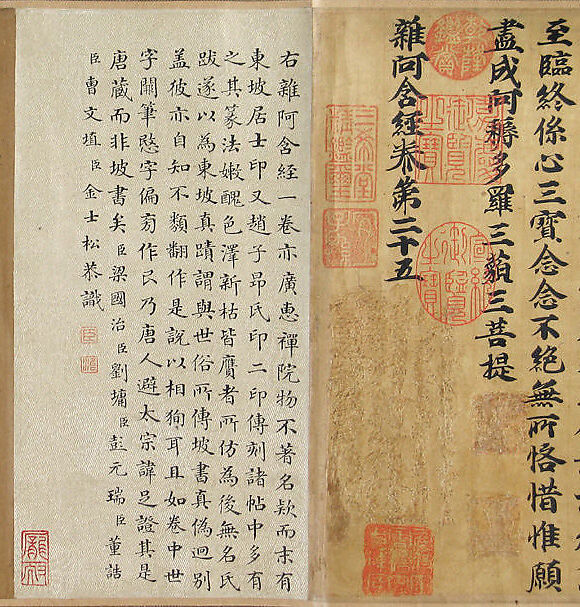 至臨終係心三寶念念不絕無所恡惜惟願
盡成阿耨多羅三藐三菩提
雜阿含經卷第二十五
嘉慶御覽之寶
宣統御覽之寶
三希堂精鑑璽
宜子孫
右雜阿含經一卷亦廣惠禪院物不著名欵而末有
東坡居士印又趙子昂氏印二印傳刻諸帖中多有
之其篆法媺醜色澤新枯皆贗者所仿為後無名氏
跋遂以為東坡真蹟謂與世俗所傳坡書真偽迥別
蓋彼亦自知不類翻作是說以相狥耳且如卷中世
字闕筆愍字偏旁作民乃唐人避太宗諱足證其是
唐蔵而非坡書矣臣梁國治臣劉墉臣彭元瑞臣董誥
臣曹文埴臣金士松恭識